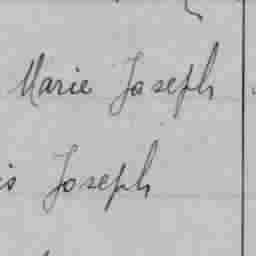 Marie Joseph
is Joseph